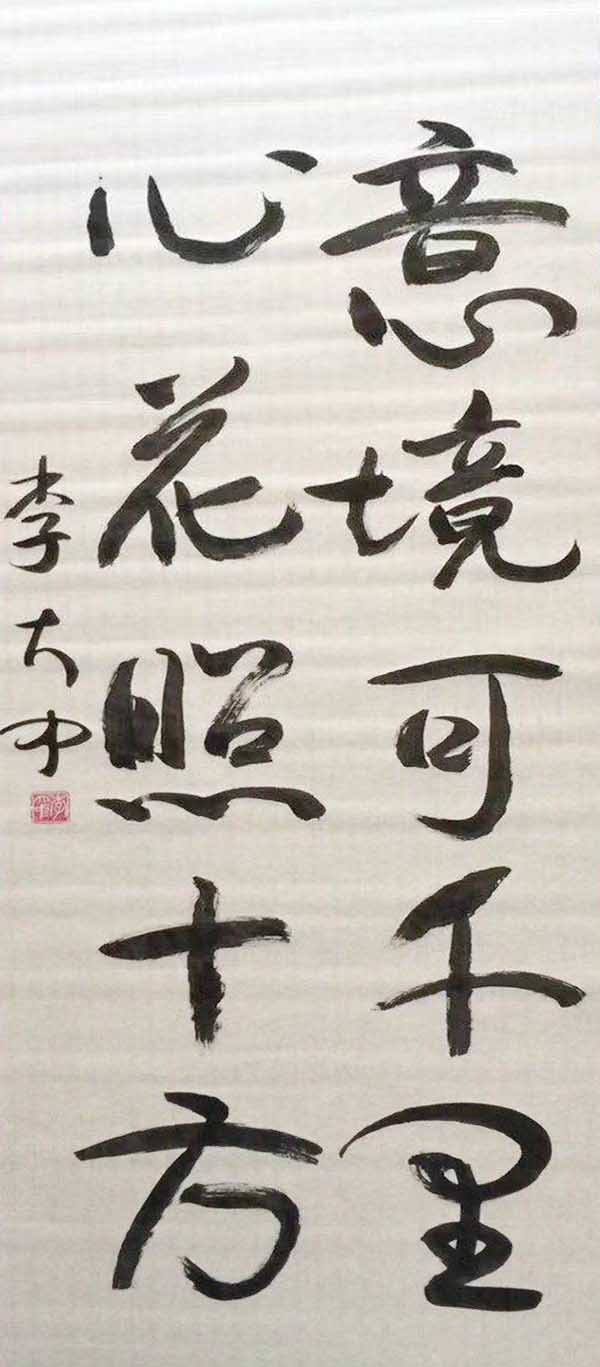 意境可千里
心花照十方
李大中